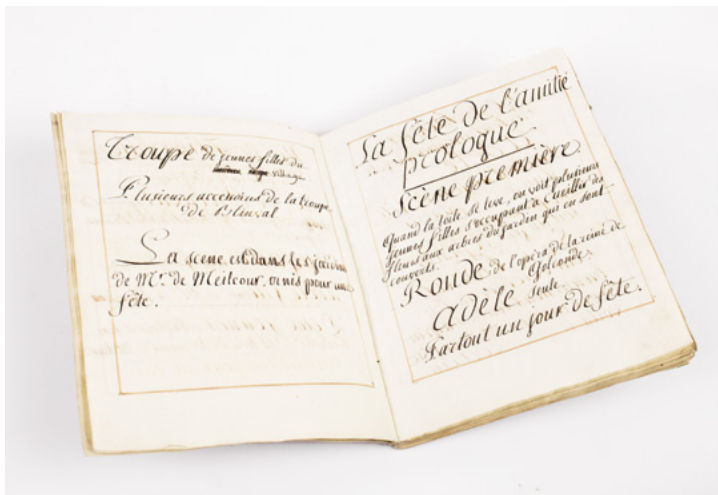 Troupe de jeunes filles du
village
Plusieurs accendoins de la troupe
de Blinval
La scene est dans les jardins
de Mr. de Meilcour, ornés pour une
fête.
La fête de l'amitié
prologue
Scène première
Quand la toile se leve, on voit plusieurs
jeunes filles s'occupant à cueiller des
fleurs aux arbres du jardin qui en sont
couverts.
Ronde de l'opéra de la reine de
Golconde.
Adèle seule
Partout un jour de fête.